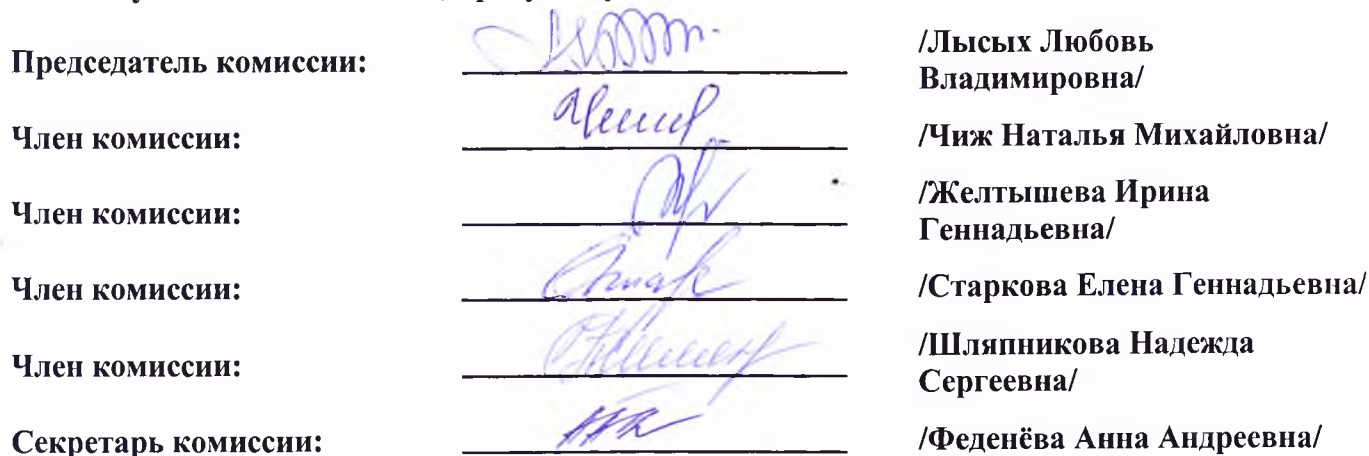 Председатель комиссии: /Лысых Любовь
Владимировна/
Член комиссии: /Чиж Наталья Михайловна/
Член комиссии: /Желтышева Ирина
Геннадьевна/
Член комиссии: /Старкова Елена Геннадьевна/
Член комиссии: /Шляпникова Надежда
Сергеевна/
Секретарь комиссии: /Феденёва Анна Андреевна/